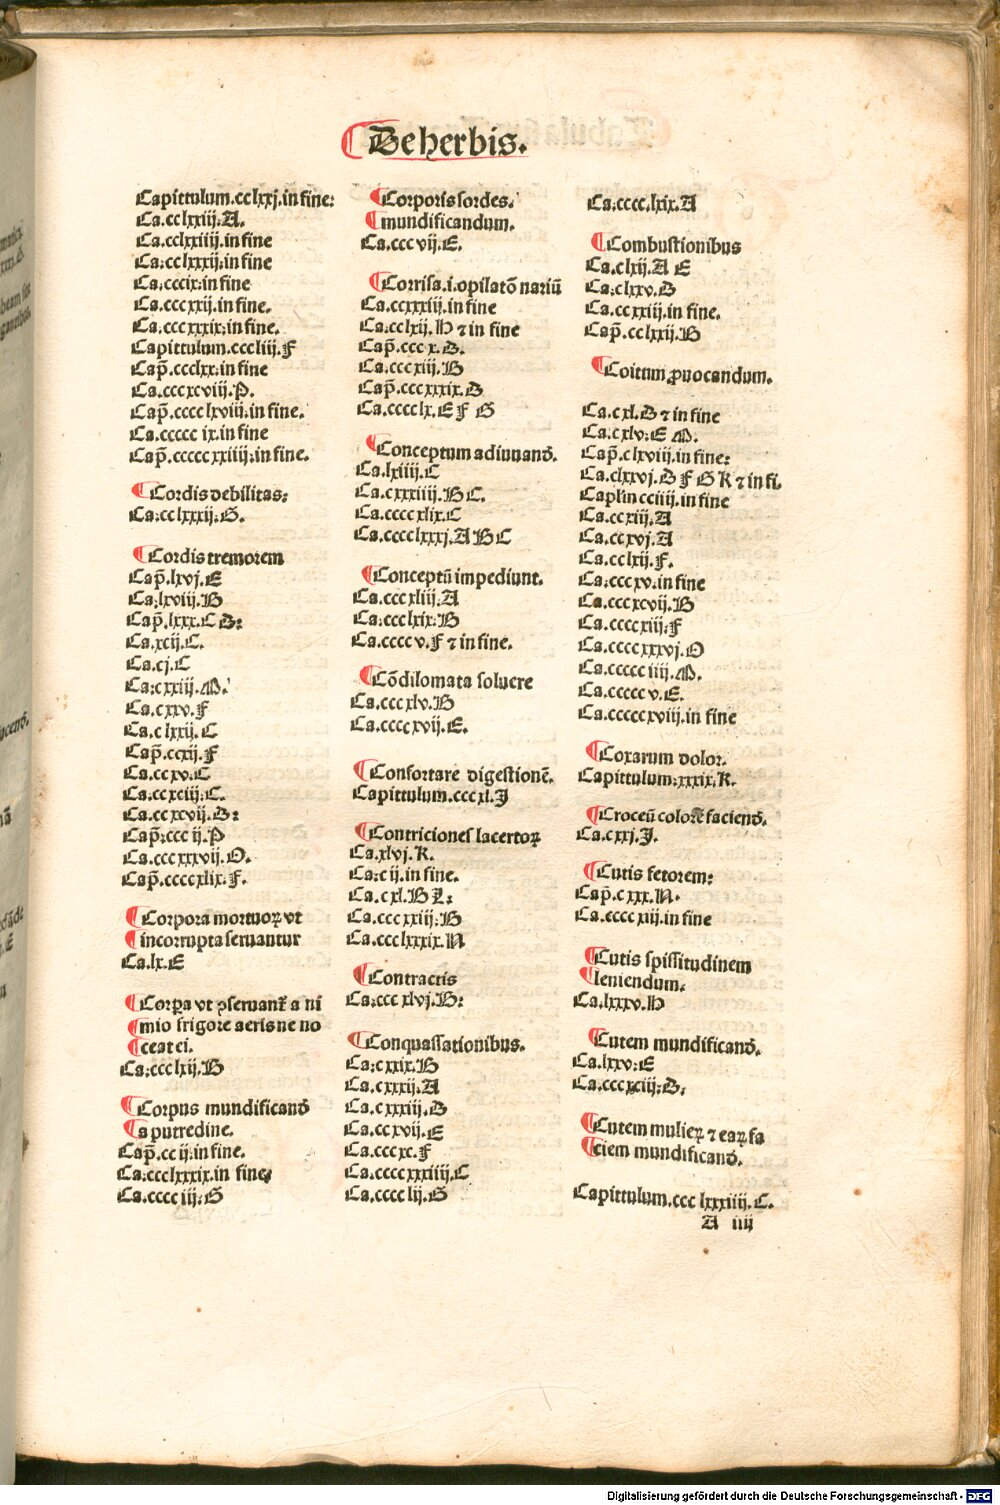 De herbis.
Capittulum.cclxxj.in fine:
Ca.cclxxiij.A.
Ca.cclxxiiij.in fine
Ca.cclxxxij.in fine
Ca.cccix.in fine
Ca.cccxxij.in fine.
Ca.cccxxxix.in fine.
Capittulum.cccliij.F
Cap̃.ccclxx.in fine
Ca.cccxcviij.P.
Cap̃.cccclxviij.in fine.
Ca.ccccc ix.in fine
Cap̃.cccccxxiiij.in fine.
Cordis debilitas:
Ca.cclxxxij.G.
Cordis tremorem
Cap̃.lxvj.E
Ca.lxviij.B
Cap̃.lxxx.C D:
Ca.xcij.C.
Ca.cj.C
Ca.cxxiij.M.
Ca.cxxv.F
Ca.clxxij.C
Cap̃.ccxij.F
Ca.ccxv.C
Ca.ccxciij.C.
Ca.ccxcvij.D:
Cap̃.ccc ij.P
Ca.cccxxxvij.O.
Cap̃.ccccxlix.F.
Corpora mortuoꝝ vt
incorrupta seruantur
Ca.lx.E
Corpa vt ꝑseruant̃ a ni
mio frigore aeris ne no
ceat ei.
Ca.ccclxij.B
Corpus mundificand̃
a putredine.
Cap̃.cc ij.in fine.
Ca.ccclxxxix.in fine
Ca.cccc iij.G
Corporis sordes.
mundificandum.
Ca.ccc vij.E.
Corrisa.i.opilatõ nariũ
Ca.ccxxxiij.in fine
Ca.cclxij.H ⁊ in fine
Cap̃.ccc x.D.
Ca.cccxiij.B
Cap̃.cccxxxix.D
Ca.cccclx.E F G
Conceptum adiuuand̃.
Ca.lxiiij.C
Ca.cxxxiiij.B C.
Ca.ccccxlix.C
Ca.cccclxxxj.A B C
Conceptũ impediunt.
Ca.cccxliij.A
Ca.ccclxix.B
Ca.cccc v.F ⁊ in fine.
Cõdilomata soluere
Ca.cccxlv.B
Ca.ccccxvij.E.
Confortare digestionẽ.
Capittulum.cccxl.J
Contriciones lacertoꝝ
Ca.xlvj.K.
Ca.c ij.in fine.
Ca.cxl.B L:
Ca.cccxxiij.B
Ca.ccclxxxix.N
Contractis
Ca.cccxlvj.B:
Conquassationibus.
Ca.cxxix.B
Ca.cxxxij.A
Ca.cxxxiij.D
Ca.ccxvij.E
Ca.cccxc.F
Ca.ccccxxxiiij.C
Ca.cccclij.G
Ca.cccc.lxix.A
Combustionibus
Ca.clxij.A E
Ca.clxxv.D
Ca.ccxxiij.in fine.
Cap̃.cclxxij.B
Coitum ꝓuocandum.
Ca.cxl.D ⁊ in fine
Ca.cxlv.E M.
Cap̃.clxviij.in fine:
Ca.clxxvj.D F G K ⁊ in fi.
Caplm̃ cciiij.in fine
Ca.ccxiij.A
Ca.ccxvj.A
Ca.cclxij.F.
Ca.cccxv.in fine
Ca.cccxcvij.B
Ca.ccccxiij.F
Ca.ccccxxxvj.O
Ca.ccccc iiij.M.
Ca.ccccc v.E.
Ca.cccccxviij.in fine
Coxarum dolor.
Capittulum:xxxix.K.
Croceũ colorẽ faciend̃.
Ca.cxxj.J.
Cutis fetorem:
Cap̃.cxxx.N.
Ca.ccccxij.in fine
Cutis spissitudinem
leniendum.
Ca.lxxxv.H
Cutem mundificand̃.
Ca.lxxv:E
Ca.cccxciij.D.
Cutem mulieꝝ ⁊ eaꝝ fa
ciem mundificand̃.
Capittulum.ccclxxxiiij.C.
A iiij
Digitalisierung gefördert durch die Deutsche Forschungsgemeinschaft - DFG